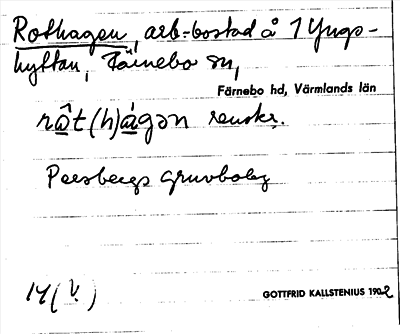 Rothagen, arb.-bostad å 1 Yngs-
hyttan, Färnebo sn,
Färnebo hd, Värmlands län
rôt(h)ágən renskr.
Persbergs gruvbolag
14 (V.)
GOTTFRID KALLSTENIUS 1902